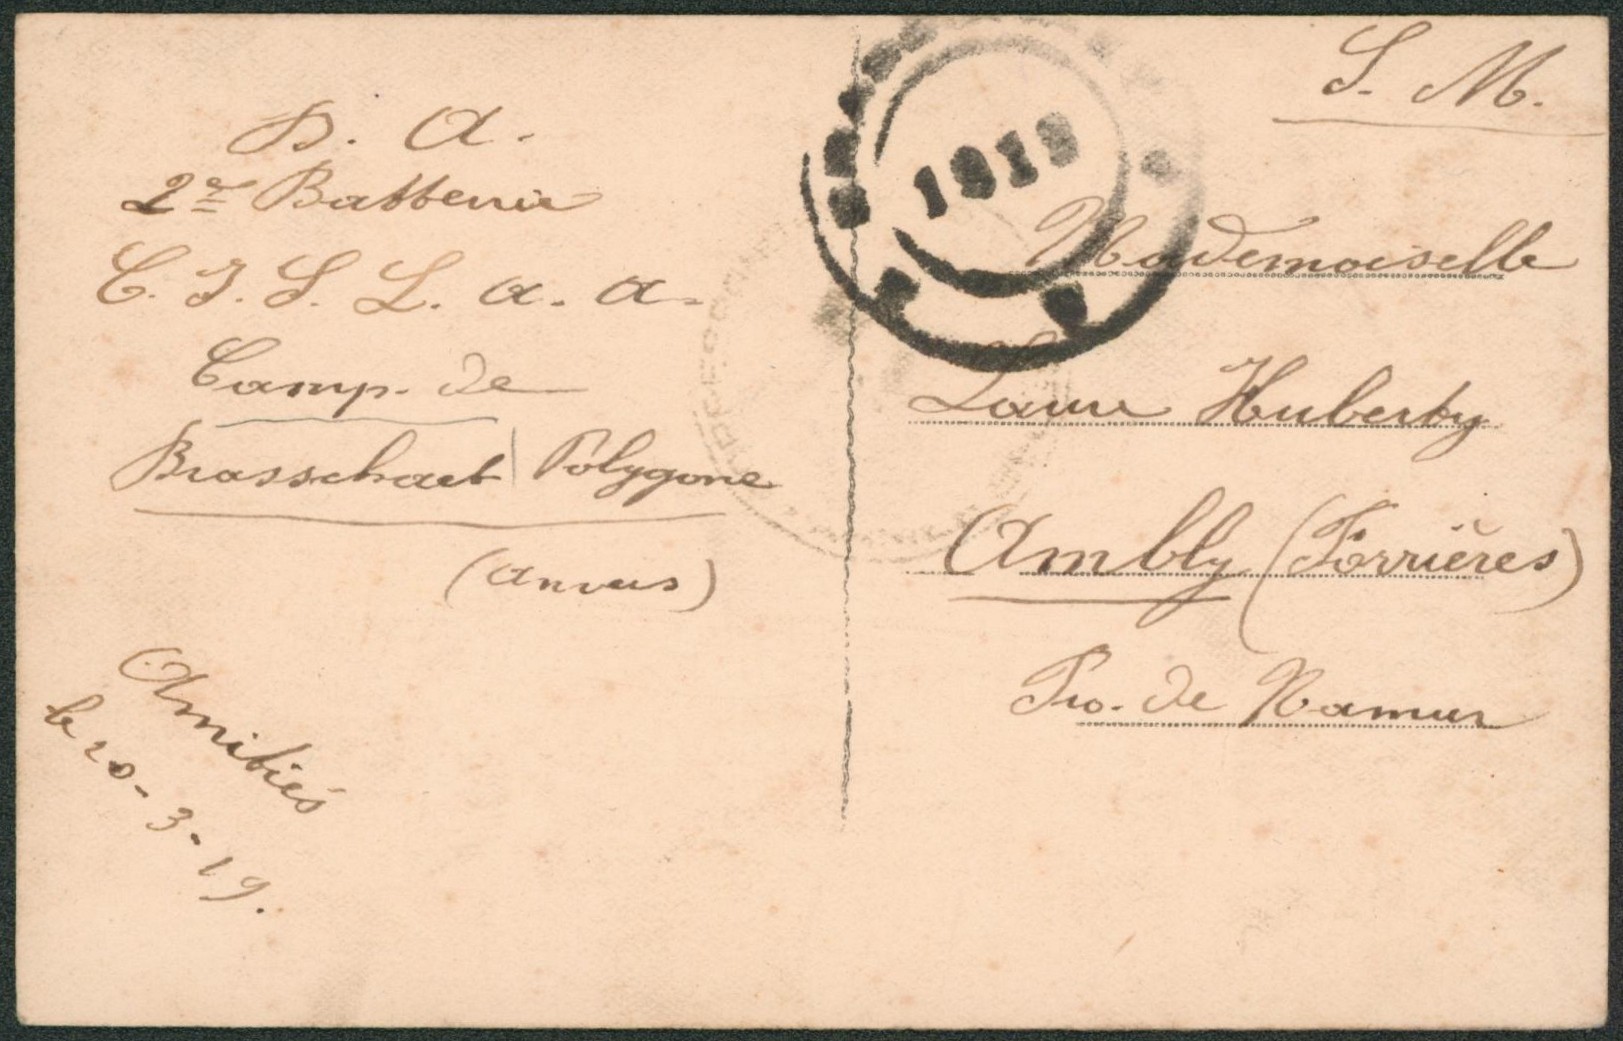 D. A.
2e Batterie
C. I. S. L. a. a.
Camp. de
Brasschaet Polygone
(Anvers)
Amitiés
le 20-3-19.
1919
S. M.
Mademoiselle
Laure Huberty
Ambly (Forrières)
Pro. de Namur